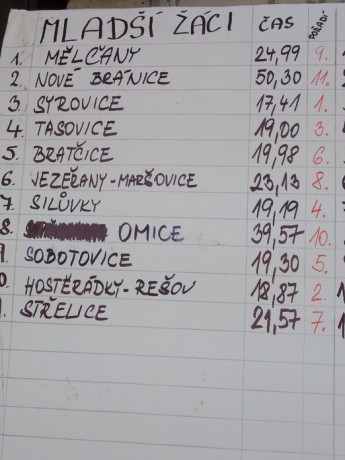 MLADŠÍ ŽÁCI ČAS POŘADÍ
1. MĚLČANY 24,99 9.
2 NOVÉ BRÁNICE 50,30 11.
3 SYROVICE 17,41 1.
4 TASOVICE 19,00 3.
5. BRATČICE 19,98 6.
6. JEZEŘANY-MARŠOVICE 23,13 8.
7. SILŮVKY 19,19 4.
8. OMICE 39,57 10.
9. SOBOTOVICE 19,30 5.
0. HOSTĚRÁDKY-REŠOV 18,87 2.
. STŘELICE 21,57 7.